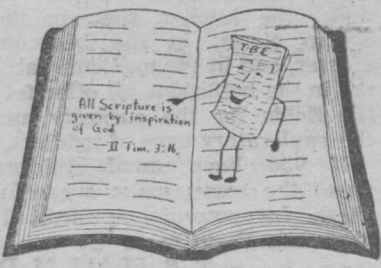 TBE
All Scripture is
given by inspiration
of God
II Tim. 3:16.